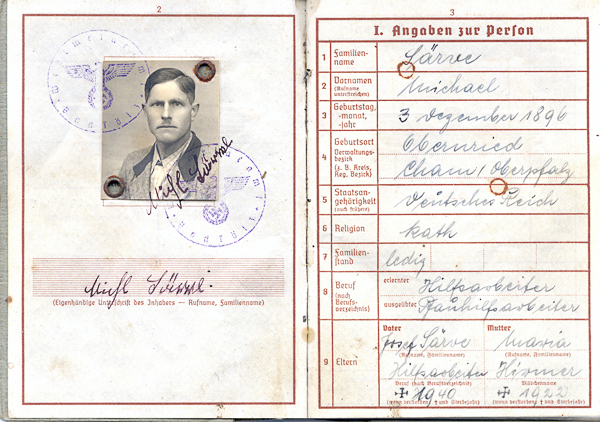 2
(Eigenhändige Unterschrift des Inhabers — Rufname, Familienname)
3
I. Angaben zur Person
1 Familien-
name
Särve
2 Vornamen
(Rufname
unterstreichen)
Michael
3 Geburtstag,
-monat,
-jahr
3 Dezember 1896
4 Geburtsort
Verwaltungs-
bezirk
(z. B. Kreis,
Reg. Bezirk)
Obernried
Cham / Oberpfalz
5 Staatsan-
gehörigkeit
(auch frühere)
Deutsches Reich
6 Religion
kath
7 Familien-
stand
ledig
8 Beruf
(nach
Berufs-
verzeichnis)
erlernter Hilfsarbeiter
ausgeübter
9 Eltern
Vater
Josef Särve
(Rufname, Familienname)
Hilfsarbeiter
Beruf (nach Berufsverzeichnis)
✝ 1940
(wenn verstorben † und Sterbejahr)
Mutter
Maria
(Rufname, Familienname)
Mädchenname
✝ 1922
(wenn verstorben † und Sterbejahr)